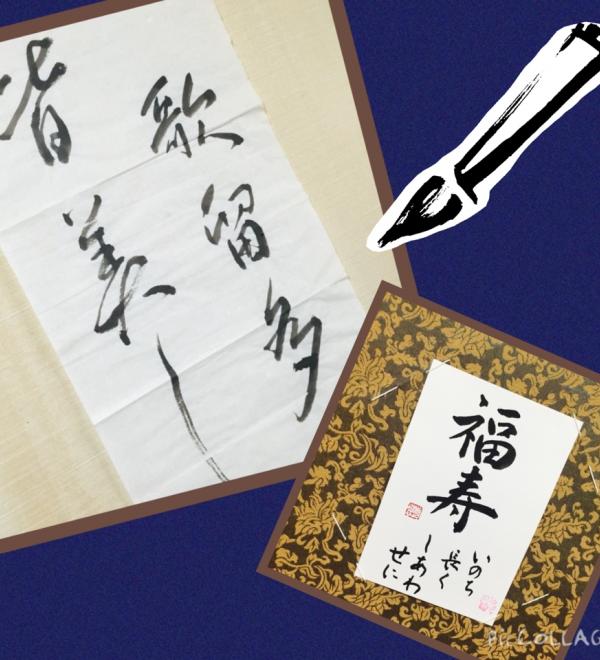 歌留多
皆美し
福寿
いのち
長く
しあわ
せに
PicCOLLAGE